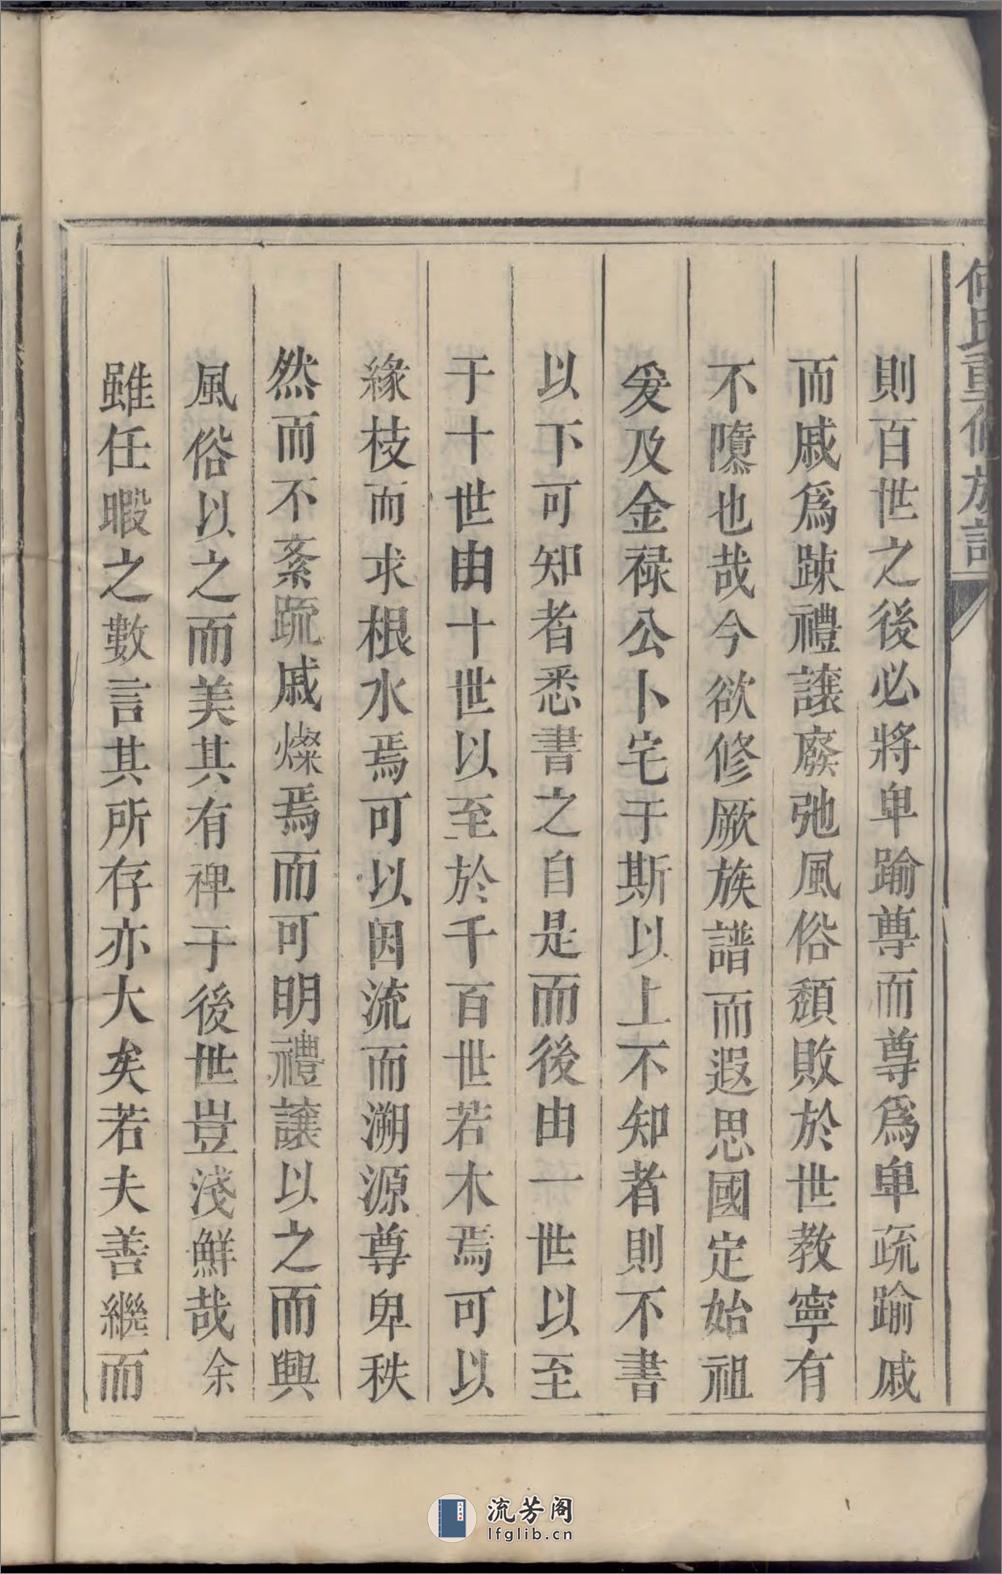 何氏重修族譜
則百世之後必將卑踰尊而尊爲卑疏踰戚
而戚爲踈禮讓廢弛風俗頹敗於世教寧有
不隳也哉今欲修厥族譜而遐思國定始祖
爰及金祿公卜宅于斯以上不知者則不書
以下可知者悉書之自是而後由一世以至
于十世由十世以至於千百世若木焉可以
緣枝而求根水焉可以因流而溯源尊卑秩
然而不紊䟽戚燦焉而可明禮讓以之而興
風俗以之而美其有裨于後世豈淺鮮哉余
雖任暇之數言其所存亦大矣若夫善繼而
流芳阁
lfglib.cn